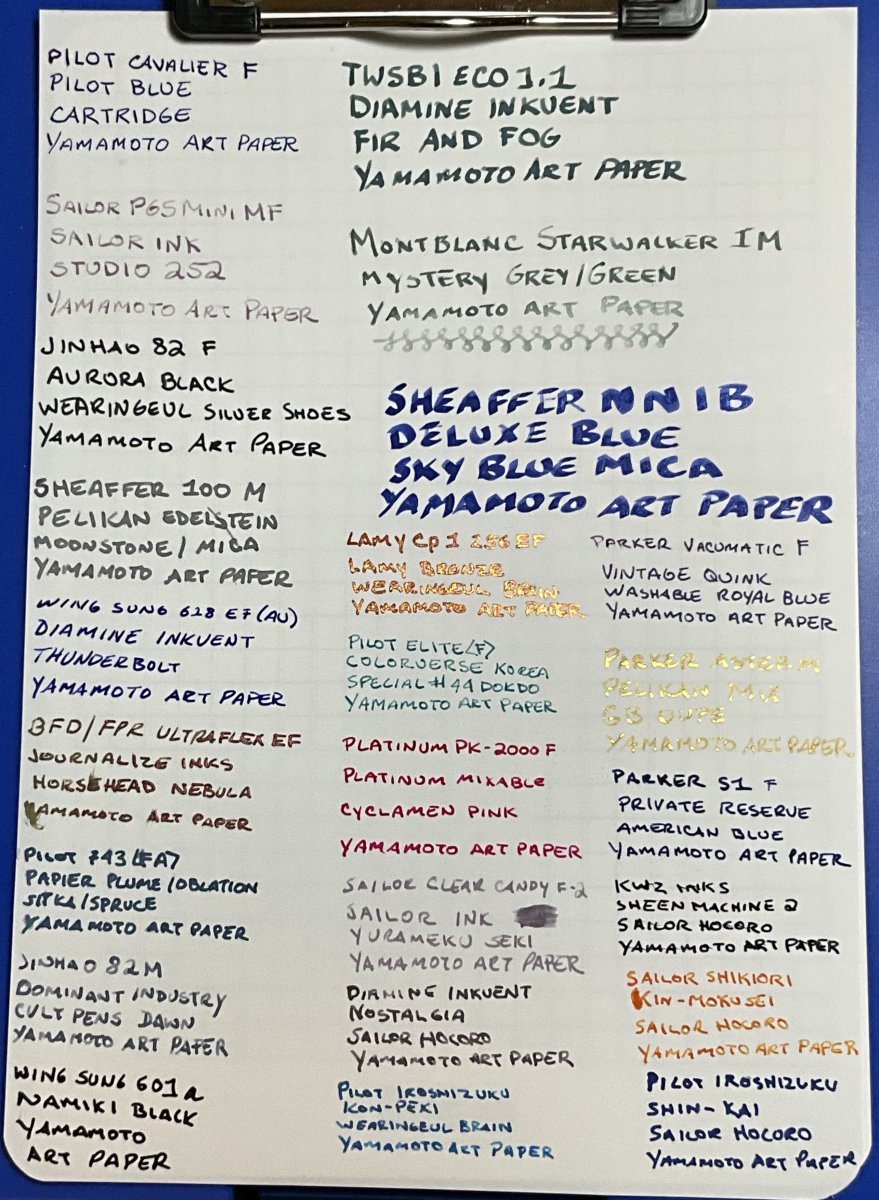 PILOT CAVALIER F
PILOT BLUE
CARTRIDGE
YAMAMOTO ART PAPER
SAILOR PGSMINI MF
SAILOR INK
STUDIO 252
YAMAMOTO ART PAPER
JINHAO 82 F
AURORA BLACK
WEARINGEUL SILVER SHOES
YAMAMOTO ART PAPER
SHEAFFER 100 M
PELIKAN EDELSTEIN
MOONSTONE/MICA
YAMAMOTO ART PAPER
WING SUNG 628 EF (AU)
DIAMINE INKVENT
THUNDERBOLT
YAMAMOTO ART PAPER
BFD/FPR ULTRAFLEX EF
JOURNALIZE INKS
HORSEHEAD NEBULA
YAMAMOTO ART PAPER
PILOT 743 <FA>
PAPIER PLUME/OBLATION
SITKA/SPRUCE
YAMAMOTO ART PAPER
JINHAO 82 M
DOMINANT INDUSTRY
CULT PENS DAWN
YAMAMOTO ART PAPER
WING SUNG 601A
NAMIKI BLACK
YAMAMOTO
ART PAPER
TWSBI ECO 1.1
DIAMINE INKVENT
FIR AND FOG
YAMAMOTO ART PAPER
MONTBLANC STARWALKER IM
MYSTERY GREY/GREEN
YAMAMOTO ART PAPER
SHEAFFER NN 1B
DELUXE BLUE
SKY BLUE MICA
YAMAMOTO ART PAPER
LAMY CP1 256 EF
LAMY BRONZE
WEARINGEUL BRAIN
YAMAMOTO ART PAPER
PILOT ELITE <F>
COLORVERSE KOREA
SPECIAL #44 DOKDO
YAMAMOTO ART PAPER
PLATINUM PK-2000 F
PLATINUM MIXABLE
CYCLAMEN PINK
YAMAMOTO ART PAPER
SAILOR CLEAR CANDY F-2
SAILOR INK
YURAMEKU SEKI
YAMAMOTO ART PAPER
DIAMINE INKVENT
NOSTALGIA
SAILOR HOCORO
YAMAMOTO ART PAPER
PILOT IROSHIZUKU
KON-PEKI
WEARINGEUL BRAIN
YAMAMOTO ART PAPER
PARKER VACUMATIC F
VINTAGE QUINK
WASHABLE ROYAL BLUE
YAMAMOTO ART PAPER
PARKER M
PELIKAN MIX
GB DUPE
YAMAMOTO ART PAPER
PARKER 51 F
PRIVATE RESERVE
AMERICAN BLUE
YAMAMOTO ART PAPER
KWZ INKS
SHEEN MACHINE 2
SAILOR HOCORO
YAMAMOTO ART PAPER
SAILOR SHIKIORI
KIN-MOKUSEI
SAILOR HOCORO
YAMAMOTO ART PAPER
PILOT IROSHIZUKU
SHIN-KAI
SAILOR HOCORO
YAMAMOTO ART PAPER